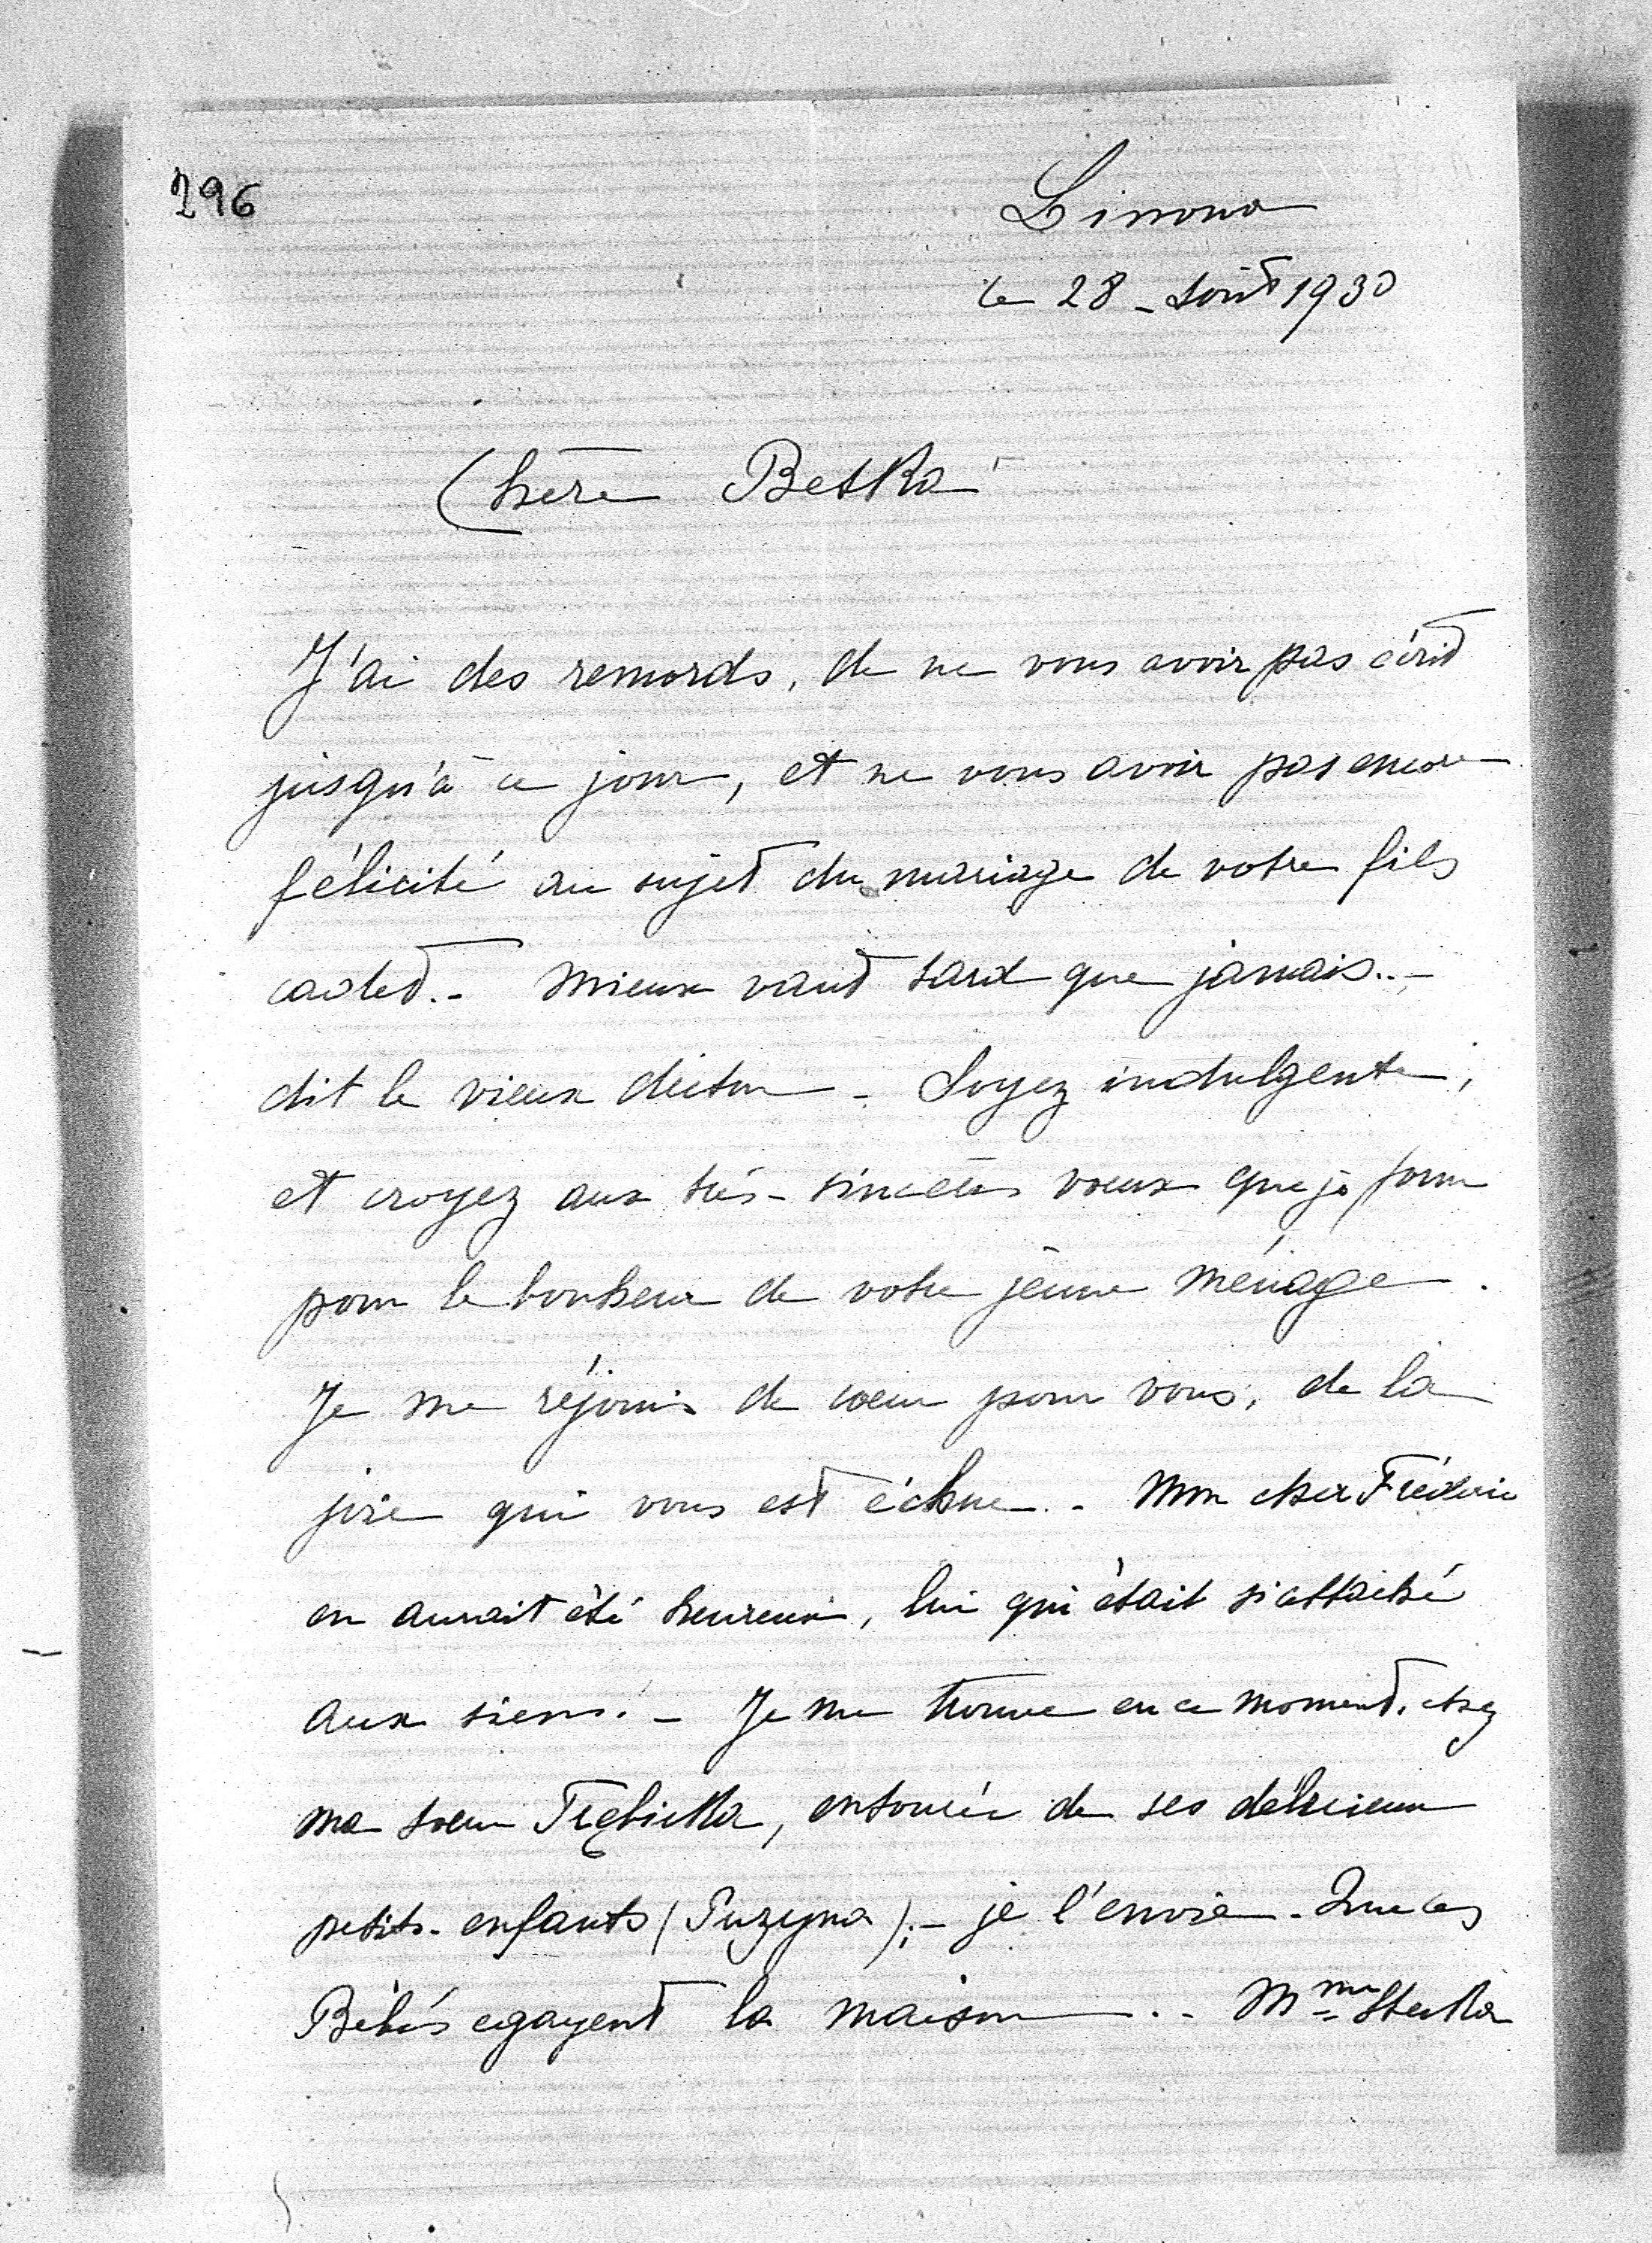 296
Linowa
le 28 - Août 1930
Chère Betka
J'ai des remords, de ne vous avoir pas écrit
jusqu'à ce jour, et ne vous avoir pas encore
félicité au sujet du mariage de votre fils
cadet.- Mieux vaut tard que jamais..-
dit le vieux dicton - Soyez indulgente,
et croyez aux très-sincères vœux que je forme
pour le bonheur de votre jeune ménage.
Je me réjouis de cœur pour vous, de la
joie qui vous est échue.- Mon cher Fréderic
en aurait été heureux, lui qui était si attaché
aux siens.- Je me trouve en ce moment, chez
ma sœur Trębicka, entourée de ses délicieux
petits-enfants (Puzyna);- je l'envie - Que ces
Bébés egayent la maison.- Mme